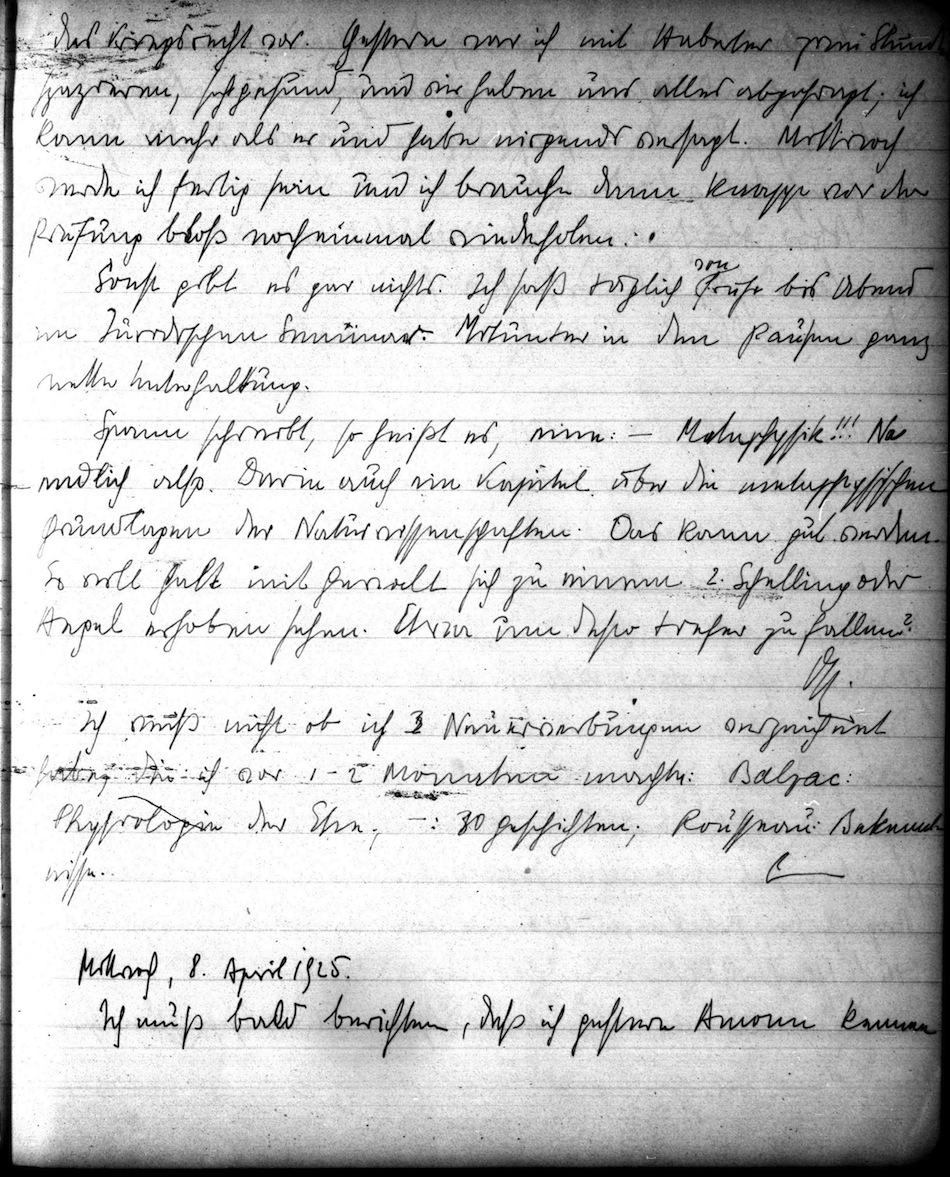 das Kriegsrecht vor. Gestern war ich mit Haberler zwei Stund
spazieren, und wir haben uns alles abgefragt; ich
kann mehr als er und habe nirgends versagt. Mittwoch
werde ich fertig sein und ich brauche dann knapp vor der
Prüfung bloß nocheinmal wiederholen.
Sonst gibt es gar nichts. Ich saß täglich von früh bis Abend
im Juridischen Seminar. Mitunter in den Pausen ganz
nette Unterhaltung.
Spann schreibt, so heißt es, eine: – Metaphysik!!! Na
endlich also. Darin auch ein Kapitel über die metaphysischen
Grundlagen der Naturwissenschaften. Das kann gut werden.
So will halt mit Gewalt sich zu einem 2. Schelling oder
Hegel erhoben sehen. Etwa um desto tiefer zu fallen?
Ich weiß nicht ob ich 3 Neuerwerbungen verzeichnet
habe, die ich vor 1-2 Monaten machte: Balzac:
Physiologie der Ehe; –: 30 Geschichten; Rousseau: Bekennt
nisse.
Mittwoch, 8. April 1925.
Ich muß bald berichten, daß ich gestern Amonn kennen